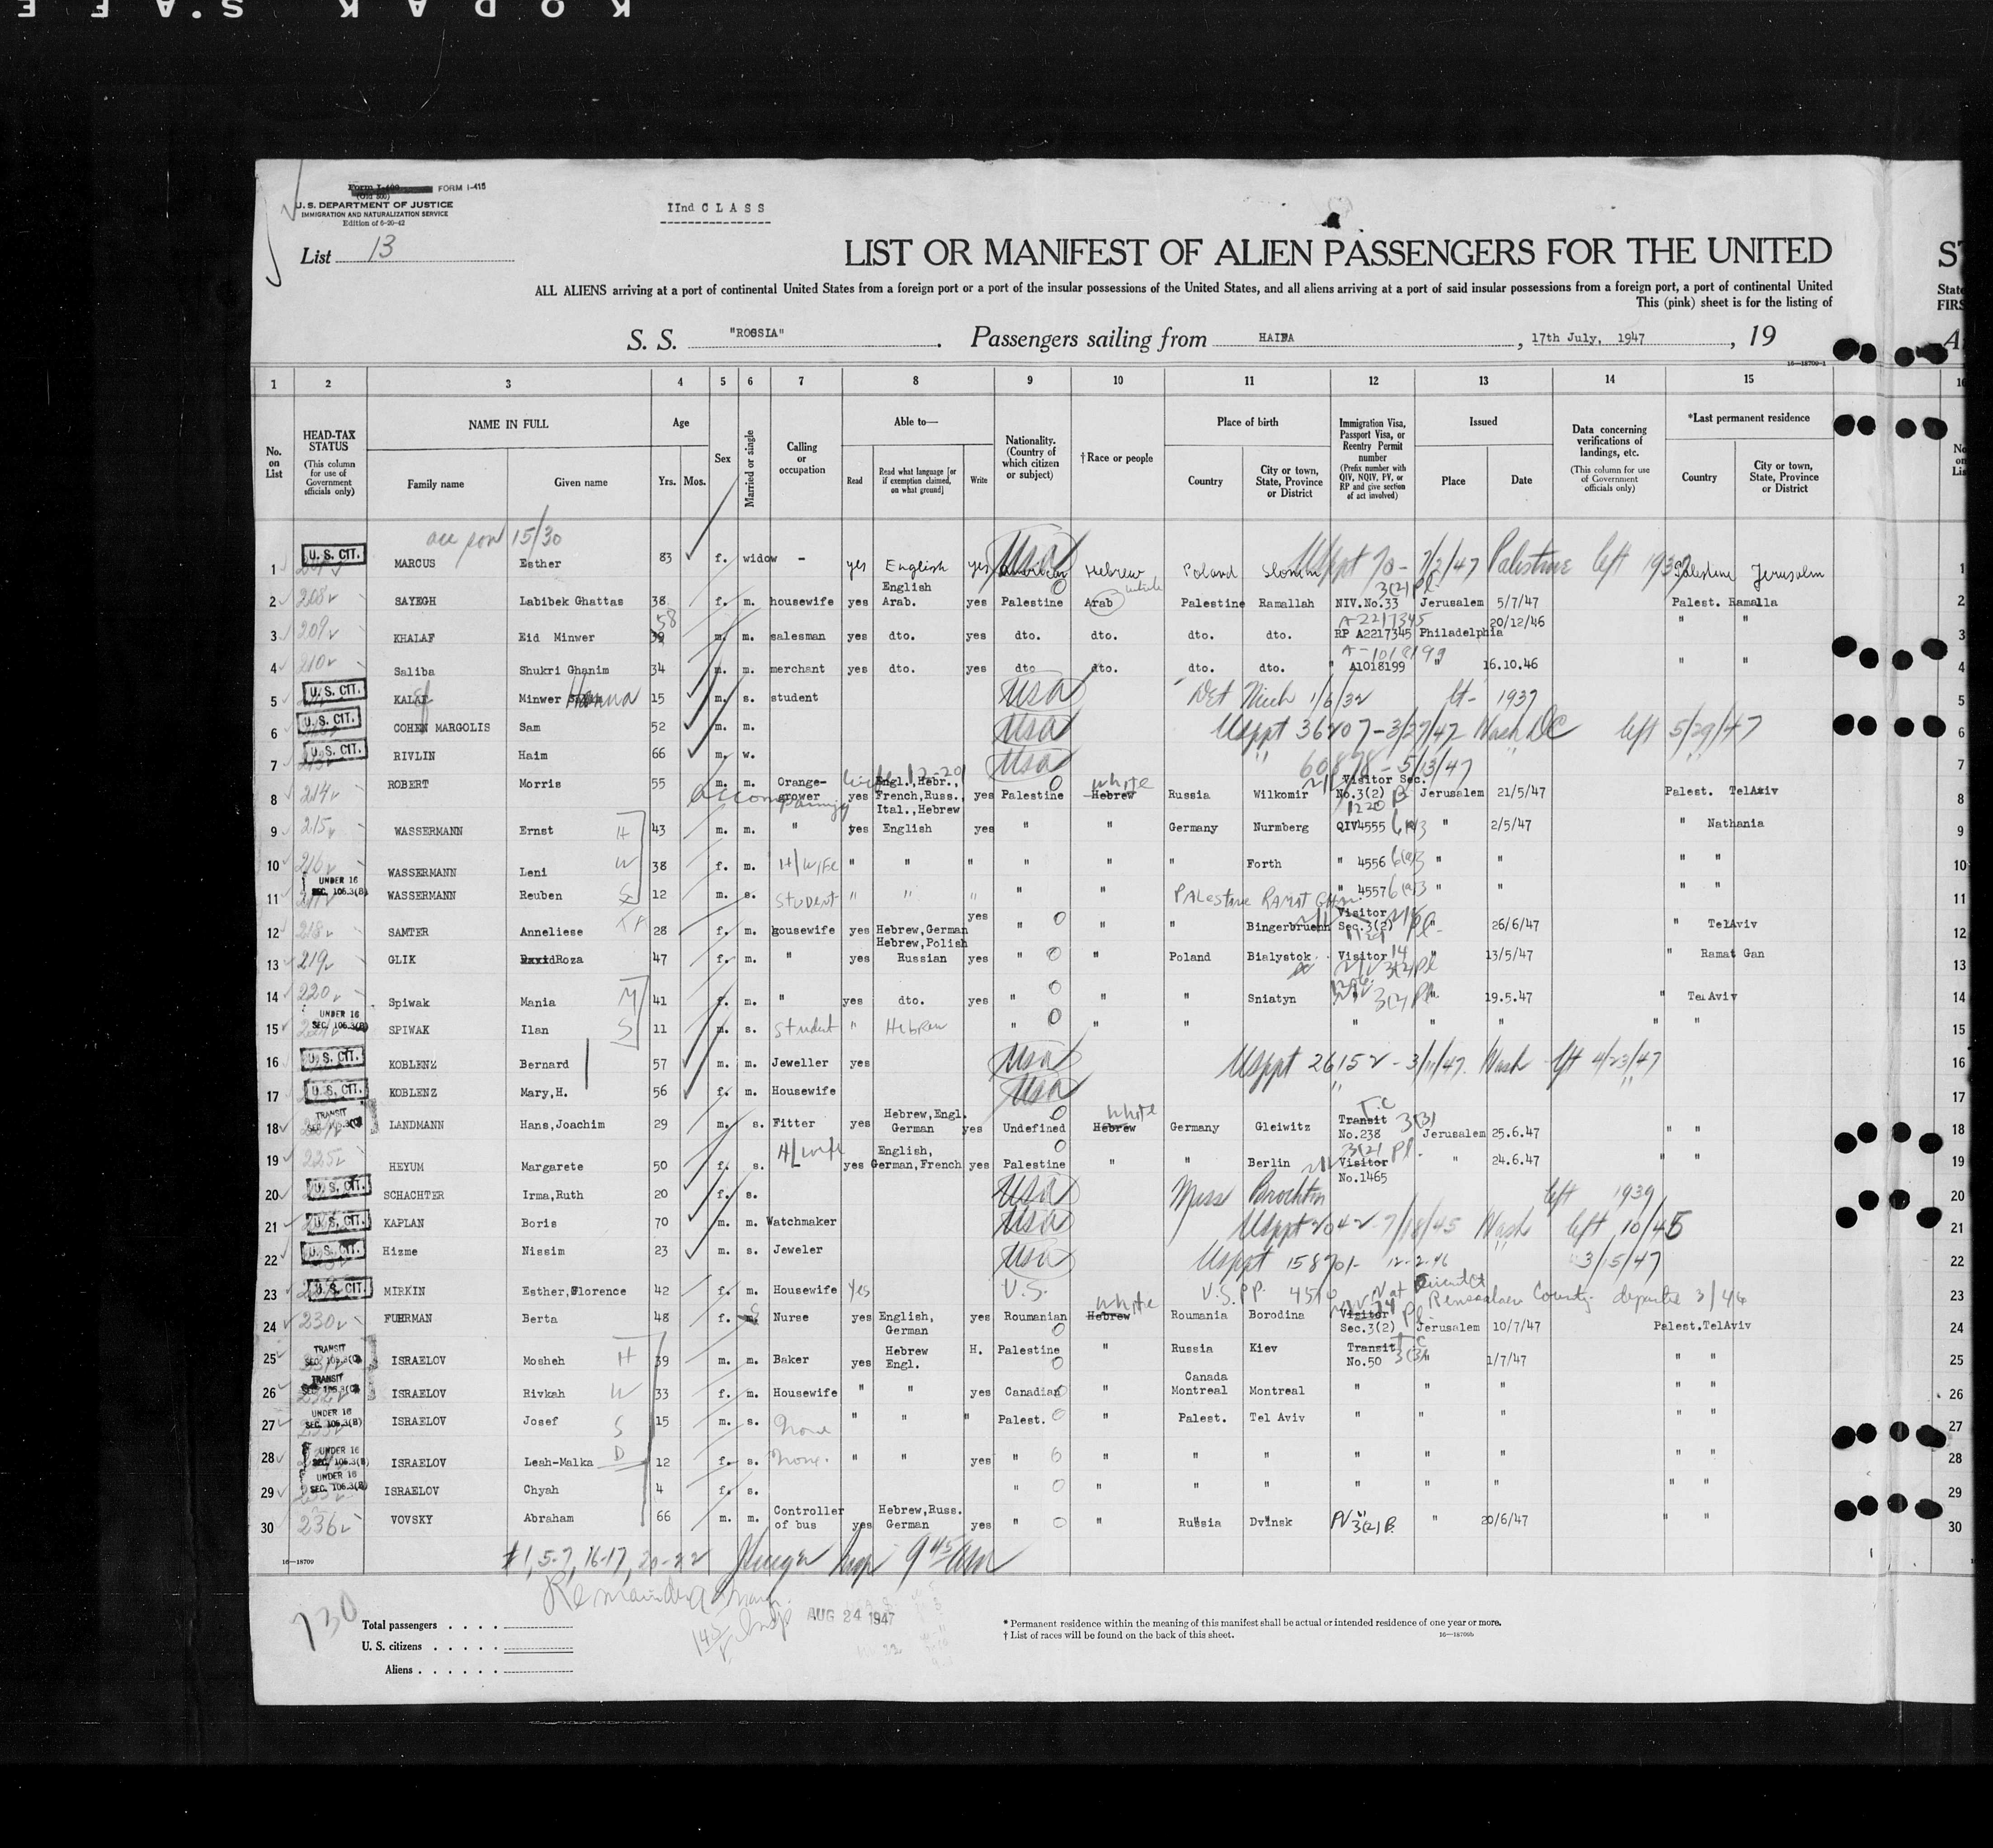 KODAK SAFE
Form I-400 FORM I-415
(Old 500)
U. S. DEPARTMENT OF JUSTICE
IMMIGRATION AND NATURALIZATION SERVICE
Edition of 6-20-42
IInd C L A S S
List 13
LIST OR MANIFEST OF ALIEN PASSENGERS FOR THE UNITED
ALL ALIENS arriving at a port of continental United States from a foreign port or a port of the insular possessions of the United States, and all aliens arriving at a port of said insular possessions from a foreign port, a port of continental United
This (pink) sheet is for the listing of
S. S. "ROSSIA" . Passengers sailing from HAIFA , 17th July, 1947 , 19
16—18709-1
1 2 3 4 5 6 7 8 9 10 11 12 13 14 15
No. on List
HEAD-TAX STATUS (This column for use of Government officials only)
NAME IN FULL Family name Given name
Age Yrs. Mos.
Sex
Married or single
Calling or occupation
Able to— Read Read what language [or if exemption claimed, on what ground] Write
Nationality. (Country of which citizen or subject)
† Race or people
Place of birth Country City or town, State, Province or District
Immigration Visa, Passport Visa, or Reentry Permit number (Prefix number with QIV, NQIV, PV, or RP and give section of act involved)
Issued Place Date
Data concerning verifications of landings, etc. (This column for use of Government officials only)
*Last permanent residence Country City or town, State, Province or District
15/30
1 U. S. CIT. MARCUS Esther 83 f. widow - yes English yes USA Hebrew Poland Slonim USppt 70- 7/2/47 Palestine left 1932 Palestine Jerusalem 1
2 208 SAYEGH Labibek Ghattas 38 f. m. housewife yes English Arab. yes Palestine Arab white Palestine Ramallah NIV.No.33 3(2) Pl. Jerusalem 5/7/47 Palest. Ramalla 2
3 209 KHALAF Eid Minwer 39 58 m. m. salesman yes dto. yes dto. dto. dto. dto. A-2217345 RP A2217345 Philadelphia 20/12/46 " " 3
4 210 Saliba Shukri Ghanim 34 m. m. merchant yes dto. yes dto dto. dto. dto. A-1018199 " A1018199 " 16.10.46 " " 4
5 U. S. CIT. KALAF Minwer Hanna 15 m. s. student USA Det Mich 1/6/32 lft- 1937 5
6 U. S. CIT. COHEN MARGOLIS Sam 52 m. m. USA USppt 36207-3/27/47 Wash DC left 5/29/47 6
7 U. S. CIT. RIVLIN Haim 66 m. w. USA " 60878-5/13/47 " 7
8 214 ROBERT Morris 55 m. m. Orange-grower accompanying wife 12-20 yes Engl.,Hebr., French,Russ., Ital.,Hebrew yes Palestine 0 Hebrew white Russia Wilkomir Visitor Sec. No.3(2) 1220 Jerusalem 21/5/47 Palest. TelAviv 8
9 215 WASSERMANN Ernst H 43 m. m. " yes English yes " " Germany Nurmberg QIV4555 6(a)3 " 2/5/47 " Nathania 9
10 216 WASSERMANN Leni W 38 f. m. H/Wife " " " " " " Forth " 4556 6(a)3 " " " " 10
11 UNDER 16 SEC. 106.3(B) WASSERMANN Reuben S 12 m. s. Student " " " " " PALestine RAMAT GAN " 4557 6(a)3 " " " " 11
12 218 SAMTER Anneliese 28 f. m. gousewife yes Hebrew,German yes " 0 " " Bingerbruenn Visitor Sec.3(2) Pl " 26/6/47 " TelAviv 12
13 219 GLIK Roza 47 f. m. " yes Hebrew,Polish Russian yes " 0 " Poland Bialystok Visitor 14 3(2) Pl " 13/5/47 " Ramat Gan 13
14 220 Spiwak Mania M 41 f. m. " yes dto. yes " 0 " " Sniatyn 3(2) Pl " 19.5.47 " Tel Aviv 14
15 UNDER 16 SEC. 106.3(B) SPIWAK Ilan S 11 m. s. Student " Hebrew " 0 " " " " " " " 15
16 U. S. CIT. KOBLENZ Bernard 57 m. m. Jeweller yes USA USppt 26152-3/11/47. Wash lft 4/23/47 16
17 U. S. CIT. KOBLENZ Mary,H. 56 f. m. Housewife USA " " 17
18 TRANSIT LANDMANN Hans,Joachim 29 m. s. Fitter yes Hebrew,Engl. German yes Undefined 0 Hebrew white Germany Gleiwitz T.C Transit No.238 3(3) Jerusalem 25.6.47 " " 18
19 225 HEYUM Margarete 50 f. s. H/wife yes English, German,French yes Palestine 0 " " Berlin 3(2) Pl. Visitor No.1465 " 24.6.47 " " 19
20 U. S. CIT. SCHACHTER Irma,Ruth 20 f. s. USA Mass Brockton left 1939 20
21 U. S. CIT. KAPLAN Boris 70 m. m. Watchmaker USA USppt 2042-7/18/45 Wash left 10/45 21
22 U. S. CIT. Hizme Nissim 23 m. s. Jeweler USA USppt 158701- 12-2-46 " 3/15/47 22
23 U. S. CIT. MIRKIN Esther,Florence 42 f. m. Housewife Yes U.S. U.S. PP. Rensselaer County departed 3/46 23
24 230 FUHRMAN Berta 48 f. m. S Nurse yes English, German yes Roumanian 0 Hebrew white Roumania Borodina Visitor Sec.3(2) Pl Jerusalem 10/7/47 Palest.TelAviv 24
25 TRANSIT ISRAELOV Mosheh H 39 m. m. Baker yes Hebrew Engl. H. Palestine 0 " Russia Kiev Transit No.50 T C 3(3) " 1/7/47 " " 25
26 TRANSIT ISRAELOV Rivkah W 33 f. m. Housewife " " yes Canadian 0 " Canada Montreal Montreal " " " " " 26
27 UNDER 16 SEC. 106.3(B) ISRAELOV Josef S 15 m. s. None " " " Palest. 0 " Palest. Tel Aviv " " " " " 27
28 UNDER 16 SEC. 106.3(B) ISRAELOV Leah-Malka D 12 f. s. None. " " yes " 0 " " " " " " " " 28
29 UNDER 16 SEC. 106.3(B) ISRAELOV Chyah 4 f. s. " 0 " " " " " " " " 29
30 236 VOVSKY Abraham 66 m. m. Controller of bus yes Hebrew,Russ. German yes " 0 " Russia Dvinsk PV 3(2) " 20/6/47 " " 30
16—18709
# 1, 5-7, 16-17, 20-22 Insp 9 45 AM
Remainder
Insp
AUG 24 1947
730
Total passengers . . . .
U. S. citizens . . . . .
Aliens . . . . . .
* Permanent residence within the meaning of this manifest shall be actual or intended residence of one year or more.
† List of races will be found on the back of this sheet.